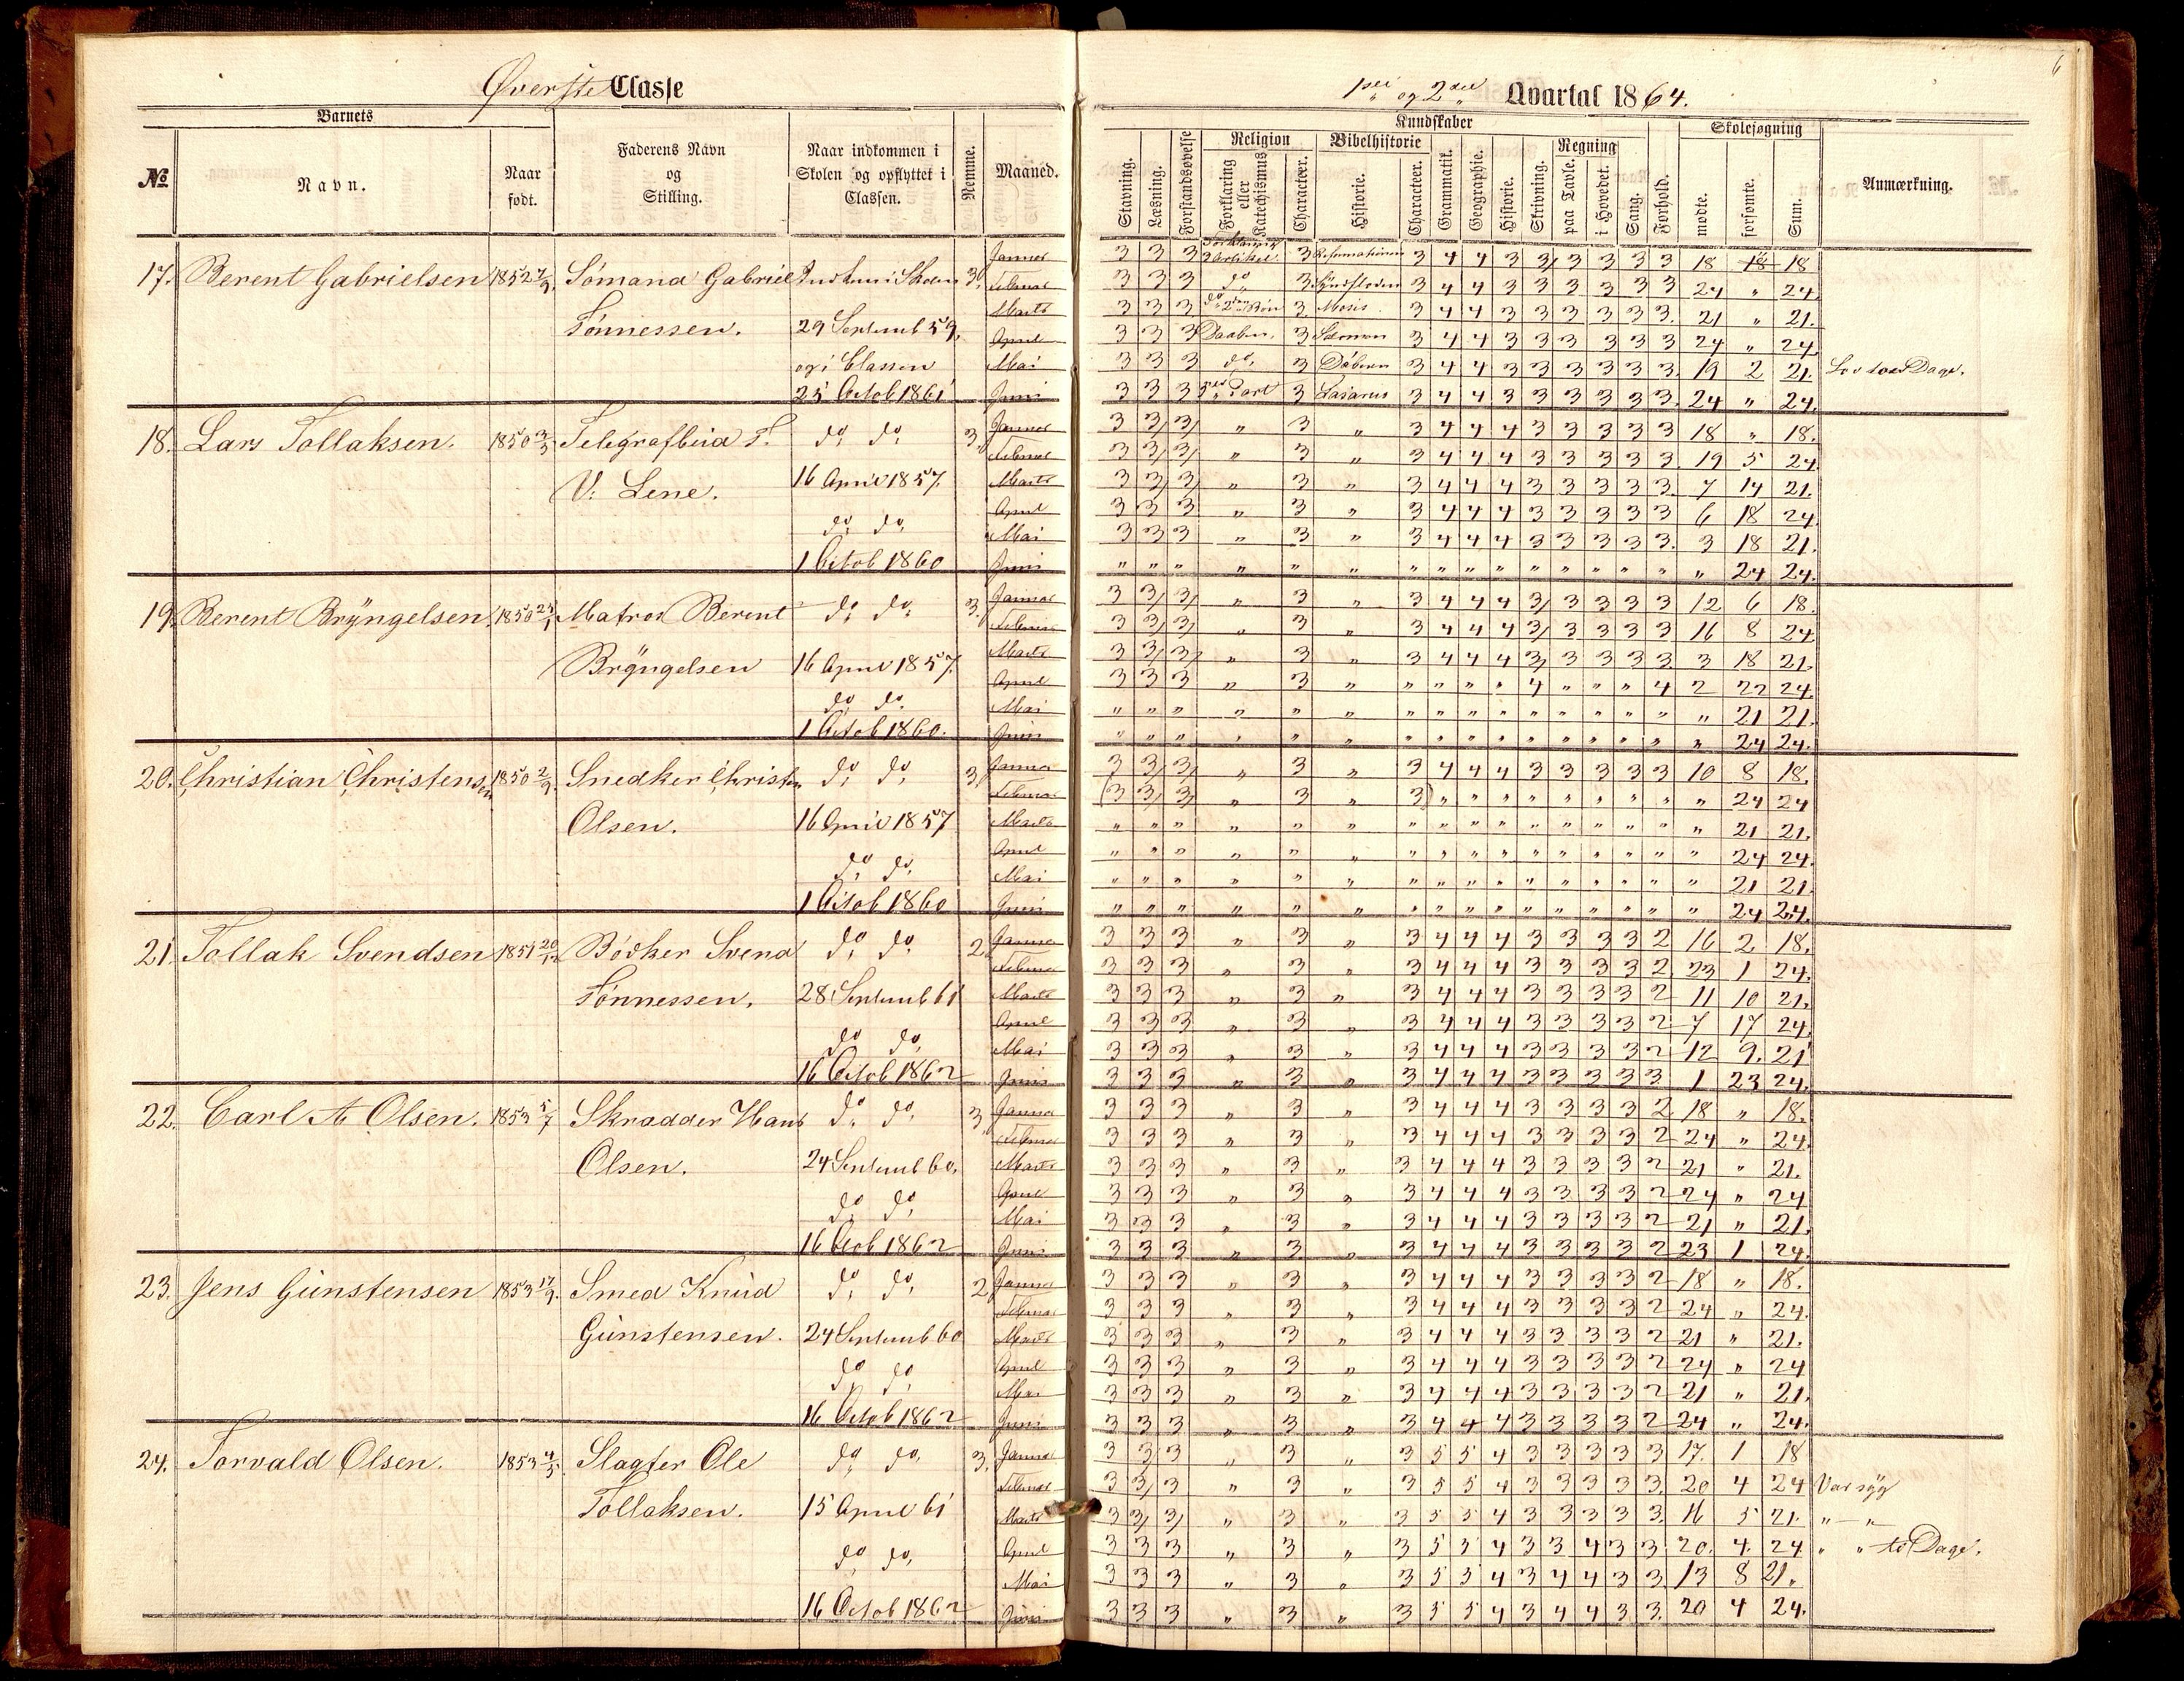 Øverste Classe
Barnets
№
Navn.
Naar født.
Faderens Navn og Stilling.
Naar indkommen i Skolen og opflyttet i Classen.
Nemme.
Maaned.
17. Berent Gabrielsen 1852 Sömand Gabriel Skolen 3. Januar
Februar
Tönnessen. 29 Septemb 59. Marts
April
og i Classen Mai
25 Octob 1861 Juni
18. Lars Tollaksen. 1850 3/3 Telegrafbud T. do, do, 3. Januar
Februar
V: Lene. 16 April 1857. Marts
April
do, do, Mai
1 Octob 1860 Juni
19. Berent Brÿngelsen. 1850 Matros Berent do, do, 3. Januar
Februar
Brÿngelsen 16 April 1857. Marts
April
do, do. Mai
1 Octob 1860. Juni
20. Christian Christensen 1850 2/9. Snedker Christen do, do, 3. Januar
Februar
Olsen. 16 April 1857 Marts
April
do, do, Mai
1 Octob 1860 Juni
21. Tollak Svendsen 1851 20/12 Bödker Svend do, do. 2. Januar
Februar
Tönnessen. 28 Septemb 61 Marts
April
do, do, Mai
16 Octob 1862 Juni
22. Carl A Olsen. 1853 5/7 Skrædder Hans do, do, 3 Januar
Februar
Olsen. 24 Septemb 60. Marts
April
do, do, Mai
16 Octob 1862 Juni
23. Jens Gunstensen 1853 17/9. Smed Knud do, do, 2. Januar
Februar
Gunstensen. 24 Septemb 60 Marts
April
do, do, Mai
16 Octob 1862 Juni
24. Torvald Olsen. 1853 4/5. Slagter Ole do, do, 3. Januar
Februar
Tollaksen. 15 April 61 Marts
April
do, do, Mai
16 Octob 1862 Juni
6
1ste og 2det Qvartal 1864.
Kundskaber
Skolesøgning
Anmærkning.
Religion
Bibelhistorie
Regning
Stavning.
Læsning.
Forstandsøvelse
Forklaring eller Katechismus
Characteer.
Historie.
Characteer.
Grammatik.
Geographie.
Historie.
Skrivning.
paa Tavle.
i Hovedet.
Sang.
Forhold.
mødte.
forsømte.
Sum.
3 3 3 Forklaring 2 Artikel 3 Reformationen 3 4 4 3 3/ 3 3 3 3 18 18 18
3 3 3 do, 3 Syndfloden 3 4 4 3 3 3 3 3 3 24 " 24
3 3 3 do, 2den Bön 3 Moses 3 4 4 3 3 3 3 3 3. 21 " 21.
3 3 3 Daaben, 3 3 4 4 3 3 3 3 3 3 24 " 24
3 3 3 do, 3 Döberen 3 4 4 3 3 3 3 3 3. 19 2 21. Dage.
3 3 3 5te Part 3 Lasarus 3 4 4 3 3 3 3 3 3. 24 " 24.
3 3/ 3/ " 3 " 3 4 4 4 3 3 3 3 3 18 " 18.
3 3/ 3/ " 3 " 3 4 4 4 3 3 3 3 3. 19 5 24
3 3/ 3/ " 3 " 3 4 4 4 3 3 3 3 3. 7 14 21.
3 3 3 " 3 " 3 4 4 4 3 3 3 3 3 6 18 24
3 3 3 " 3 " 3 4 4 4 3 3 3 3 3. 3 18 21.
" " " " " " " " " " " " " " " " 24 24.
3 3/ 3/ " 3 " 3 4 4 4 3/ 3 3 3 3 12 6 18.
3 3/ 3/ " 3 " 3 4 4 4 3/ 3 3 3 3 16 8 24
3 3/ 3/ " 3 " 3 4 4 4 3/ 3 3 3 3. 3 18 21.
3 3 3 " 3 " " " " " 4 " " " 4 2 22 24.
" " " " " " " " " " " " " " " " 21 21.
" " " " " " " " " " " " " " " " 24 24.
3 3/ 3/ " 3 " 3 4 4 4 3 3 3 3 3 10 8 18.
(3 3/ 3/ " 3 " 3) " " " " " " " " " 24 24
" " " " " " " " " " " " " " " " 21 21.
" " " " " " " " " " " " " " " " 24 24.
" " " " " " " " " " " " " " " " 21 21
" " " " " " " " " " " " " " " " 24 24.
3 3 3 " 3 " 3 4 4 4 3 3 3 3 2 16 2 18.
3 3 3 " 3 " 3 4 4 4 3 3 3 3 2 23 1 24.
3 3 3 " 3 " 3 4 4 4 3 3 3 3 2 11 10 21.
3 3 3 " 3 " 3 4 4 4 3 3 3 3 2 7 17 24.
3 3 3 " 3 " 3 4 4 4 3 3 3 3 2 12 9. 21
3 3 3 " 3 " 3 4 4 4 3 3 3 3 3 1 23 24.
3 3 3 " 3 " 3 4 4 4 3 3 3 3 2 18 " 18.
3 3 3 " 3 " 3 4 4 4 3 3 3 3 2 24 " 24.
3 3 3 " 3 " 3 4 4 4 3 3 3 3 2 21 " 21.
3 3 3 " 3 " 3 4 4 4 3 3 3 3 2 24 " 24
3 3 3 " 3 " 3 4 4 4 3 3 3 3 2 21 " 21.
3 3 3 " 3 " 3 4 4 4 3 3 3 3 2 23 1 24.
3 3 3 " 3 " 3 4 4 4 3 3 3 3 2 18 " 18.
3 3 3 " 3 " 3 4 4 4 3 3 3 3 2 24 " 24.
3 3 3 " 3 " 3 4 4 4 3 3 3 3 2 21 " 21.
3 3 3 " 3 " 3 4 4 4 3 3 3 3 2 24 " 24
3 3 3 " 3 " 3 4 4 4 3 3 3 3 2 21 " 21.
3 3 3 " 3 " 3 4 4 4 3 3 3 3 2 24 " 24.
3 3/ 3 " 3 " 3 5 5 4 3 3 3 3 3 17. 1 18
3 3/ 3 " 3 " 3 5 5 4 3 3 3 3 3. 20 4 24 Var syg
3 3/ 3/ " 3 " 3 5 5 4 3 3 3 3 3. 16 5 21. " — "
3 3 3 " 3 " 3 5 5 4 3 3 4 3 3 20. 4. 24 " " to Dage.
3 3 3 " 3 " 3 5 5 4 3 4 4 3 3 13 8 21.
3 3 3 " 3 " 3 5 5 4 3 4 4 3 3. 20 4 24.